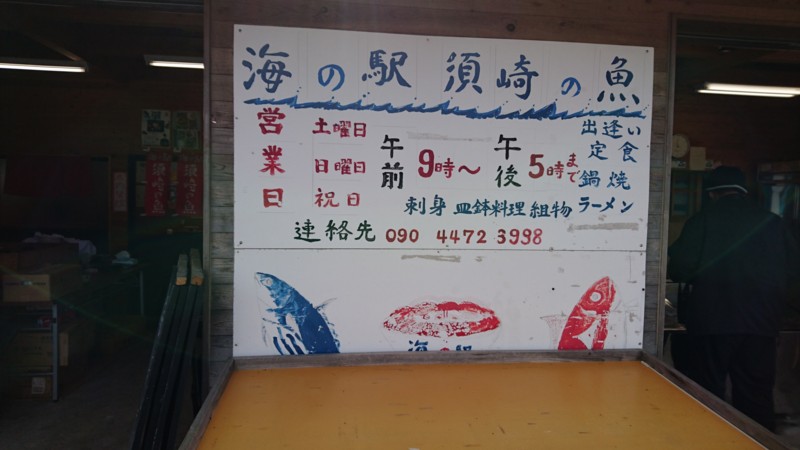 海の駅 須崎の魚
営業日
土曜日
日曜日
祝日
午前9時〜午後5時まで
出逢い
定食
鍋焼
ラーメン
刺身 皿鉢料理 組物
連絡先 090 4472 3998